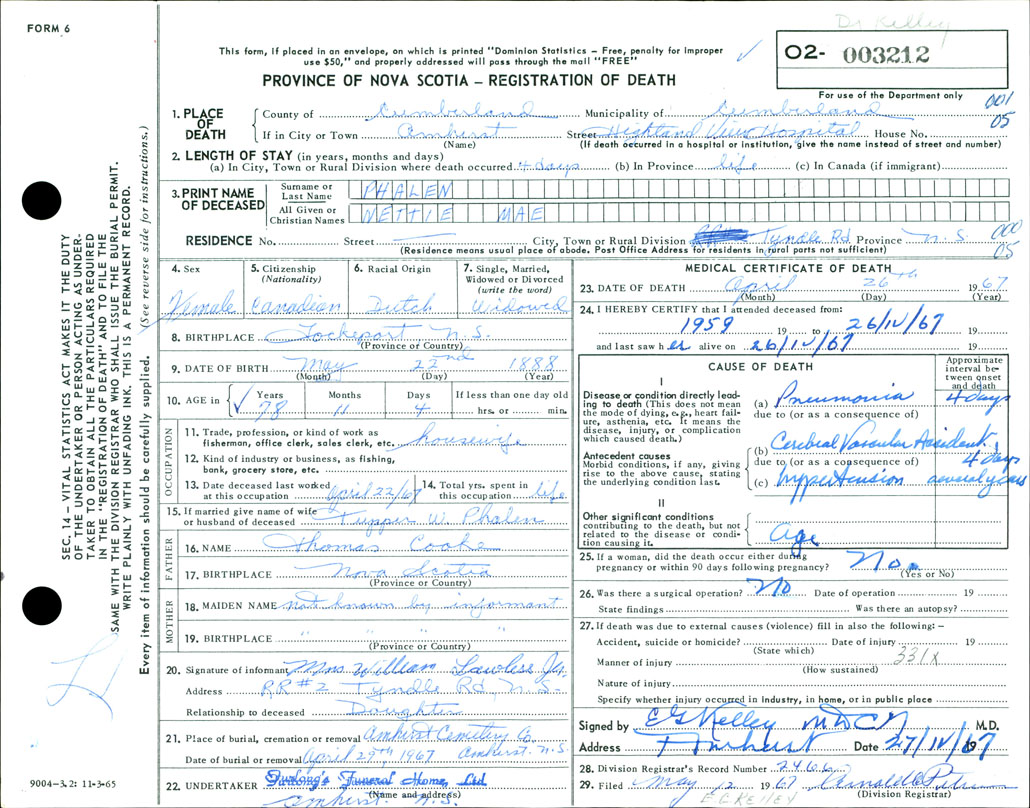 Dr Kelley
FORM 6
O2- 003212
This form, if placed in an envelope, on which is printed "Dominion Statistics – Free, penalty for improper
use $50," and properly addressed will pass through the mail "FREE"
PROVINCE OF NOVA SCOTIA – REGISTRATION OF DEATH
For use of the Department only
001
05
1. PLACE OF DEATH
County of Cumberland Municipality of Cumberland
If in City or Town Amherst Street Highland View Hospital House No.
(Name) (If death occurred in a hospital or institution, give the name instead of street and number)
2. LENGTH OF STAY (in years, months and days)
(a) In City, Town or Rural Division where death occurred 4 days (b) In Province life (c) In Canada (if immigrant)
3. PRINT NAME OF DECEASED
Surname or Last Name PHALEN
All Given or Christian Names NETTIE MAE
000
05
RESIDENCE No. Street City, Town or Rural Division Tyndle Rd Province N.S.
(Residence means usual place of abode. Post Office Address for residents in rural parts not sufficient)
4. Sex Female
5. Citizenship (Nationality) Canadian
6. Racial Origin Dutch
7. Single, Married, Widowed or Divorced (write the word) Widowed
8. BIRTHPLACE Lockeport N.S.
(Province or Country)
9. DATE OF BIRTH May 22nd 1888
(Month) (Day) (Year)
10. AGE in Years 78 Months 11 Days 4 If less than one day old hrs. or min.
OCCUPATION
11. Trade, profession, or kind of work as
fisherman, office clerk, sales clerk, etc. housewife
12. Kind of industry or business, as fishing,
bank, grocery store, etc.
13. Date deceased last worked at this occupation April 22/67
14. Total yrs. spent in this occupation life
15. If married give name of wife
or husband of deceased Tupper W. Phalen
FATHER
16. NAME Thomas Cooke
17. BIRTHPLACE Nova Scotia
(Province or Country)
MOTHER
18. MAIDEN NAME not known by informant
19. BIRTHPLACE " " "
(Province or Country)
20. Signature of informant Mrs William Lawless Jr.
Address RR #2 Tyndle Rd, N.S.
Relationship to deceased Daughter
21. Place of burial, cremation or removal Amherst Cemetery Co.
Amherst. N.S.
Date of burial or removal April 29th, 1967
22. UNDERTAKER Furlong's Funeral Home, Ltd.
(Name and address)
Amherst. N.S.
MEDICAL CERTIFICATE OF DEATH
23. DATE OF DEATH April 26th 1967
(Month) (Day) (Year)
24. I HEREBY CERTIFY that I attended deceased from:
1959 19 to 26/IV/67 19
and last saw her alive on 26/IV/67 19
CAUSE OF DEATH
Approximate interval between onset and death
I
Disease or condition directly leading to death (This does not mean the mode of dying, e.g., heart failure, asthenia, etc. It means the disease, injury, or complication which caused death.)
(a) Pneumonia 4 days
due to (or as a consequence of)
Antecedent causes
Morbid conditions, if any, giving rise to the above cause, stating the underlying condition last.
(b) Cerebral Vascular Accident 4 days
due to (or as a consequence of)
(c) Hypertension several years
II
Other significant conditions
contributing to the death, but not related to the disease or condition causing it.
Age
25. If a woman, did the death occur either during
pregnancy or within 90 days following pregnancy? No
(Yes or No)
26. Was there a surgical operation? No Date of operation 19
State findings Was there an autopsy?
27. If death was due to external causes (violence) fill in also the following: –
Accident, suicide or homicide? Date of injury 19
(State which)
Manner of injury 331X
(How sustained)
Nature of injury
Specify whether injury occurred in industry, in home, or in public place
Signed by E G Kelley MDCM M.D.
Address Amherst Date 27/IV/67
28. Division Registrar's Record Number 2466
29. Filed May 12 1967
(Division Registrar)
E. G. KELLEY
SEC. 14 – VITAL STATISTICS ACT MAKES IT THE DUTY
OF THE UNDERTAKER OR PERSON ACTING AS UNDER-
TAKER TO OBTAIN ALL THE PARTICULARS REQUIRED
IN THE "REGISTRATION OF DEATH" AND TO FILE THE
SAME WITH THE DIVISION REGISTRAR WHO SHALL ISSUE THE BURIAL PERMIT.
WRITE PLAINLY WITH UNFADING INK. THIS IS A PERMANENT RECORD.
Every item of information should be carefully supplied. (See reverse side for instructions.)
9004–3.2: 11-3-65